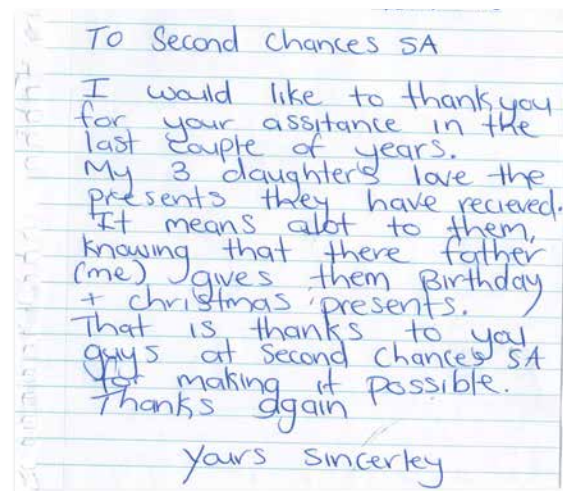 To Second Chances SA
I would like to thankyou
for your assitance in the
last couple of years.
My 3 daughter's love the
presents they have recieved.
It means alot to them,
knowing that there father
(me) gives them Birthday
+ christmas presents.
That is thanks to you
guys at Second Chances SA
for making it possible.
Thanks again
Yours Sincerley